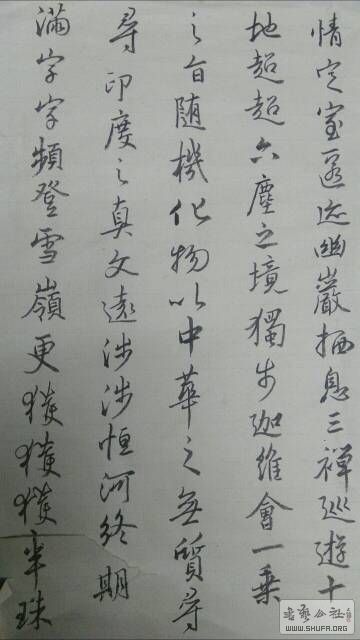 情定室匿迹幽巖栖息三禪巡遊十
地超超六塵之境獨步迦維會一乘
之旨随機化物以中華之無質尋
尋印度之真文遠涉涉恒河終期
滿字字頻登雪嶺更獲獲獲半珠
书法公社
WWW.SHUFA.ORG